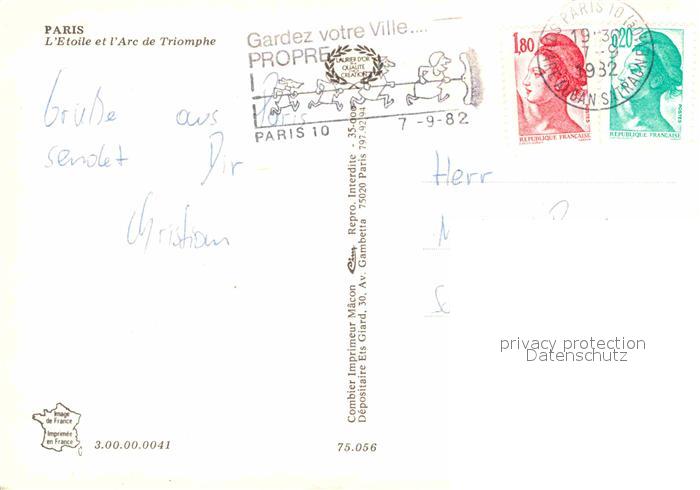 PARIS
L'Etoile et l'Arc de Triomphe
Gardez votre Ville....
PROPRE
LAURIER D'OR
DE LA
QUALITÉ
CRÉATION
PARIS 10 7-9-82
PARIS 10
19H30
7-9
1982
1,80
POSTES
REPUBLIQUE FRANÇAISE
0,20
POSTES
REPUBLIQUE FRANÇAISE
Grüße aus Paris
sendet Dir
Christian
Herr
privacy protection
Datenschutz
Combier Imprimeur Mâcon Cim Repro. Interdite - 35-009
Dépositaire Ets Giard, 30, Av. Gambetta 75020 Paris 797.92.94
Image
de France
Imprimée
en France
3.00.00.0041
75.056